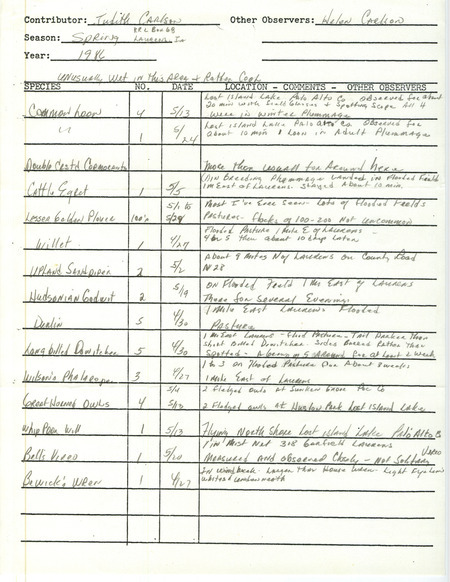 Contributor: Judith Carlson Other Observers: Helen Carlson
RR 2 Box 68
Season: Spring Laurens, Ia
Year: 1986
Unusually wet in this area + Rather Cool
SPECIES NO. DATE LOCATION - COMMENTS - OTHER OBSERVERS
Lost Island Lake Palo Alto Co observed for about
20 min with Scott Glasses + Spotting Scope All 4
Common Loon 4 5/13 were in winter Plummage
Lost Island Lake Palo Alto Co. Observed for
" 1 5/24 about 10 min 1 Loon in Adult Plummage
Double Crest'd Cormorants More than usual for Around here
In Breeding Plummage Landed in Flooded Fields
Cattle Egret 1 5/5 1 mi East of Laurens. Stayed About 10 min.
5/1 Most I've Ever Seen Lots of Flooded Fields
Lesser Golden Plover 100's Pastures - Flocks of 100-200 Not uncommon
Flooded Pasture 1 mile E of Laurens -
Willet 1 4/27 4 or 5 there about 10 days Later
About 9 miles No/ Laurens on County Road
Upland Sandpiper 2 5/2 N28
on Flooded Field 1 mi East of Laurens
Hudsonian Godwit 2 5/9 There for Several Evenings
1 Mile East Laurens Flooded
Dunlin 5 4/30 Pasture
1 mi East Laurens - Flood Pasture - Tail Darker than
Short Billed Dowitcher. Sides Barred Rather Than
Long Billed Dowitcher 5 4/30 Spotted - A Group of 5 Around for at least a week
1 to 3 on Flooded Pasture For About 2 weeks
Wilson's Phalarope 3 4/27 1 Mile East of Laurens
2 Fledged owls at Sunken Grove Poc Co
Great Horned Owls 4 2 Fledged owls at Huston Park Lost Island Lake
Whip Poor Will 1 5/13 Flying North Shore Lost Island Lake Palo Alto Co
In Mist Net 318 Garfield Laurens
Bells Vireo 1 5/10 Measured and observed Closely - Not Solitary Vireo
In windbreak. Larger than House Wren - Light Eye Line
Bewick's Wren 1 4/27 whitish underneath